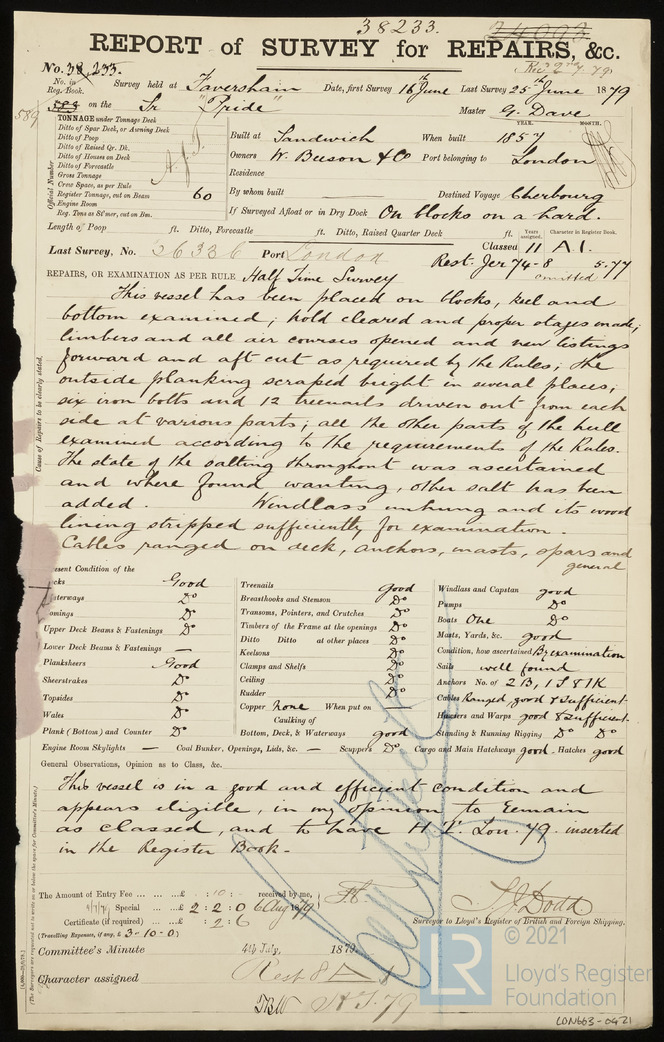 38233.
24093
REPORT of SURVEY for REPAIRS, &c.
No. 38,233.
Rec. 2 7 79
No. in Reg. Book. Survey held at Faversham Date, first Survey 16th June Last Survey 25th June 1879
589 588 on the Sr "Pride" Master G. Dave
TONNAGE under Tonnage Deck
Ditto of Spar Deck, or Awning Deck
Ditto of Poop
Ditto of Raised Qr. Dk.
Ditto of Houses on Deck
Ditto of Forecastle
Gross Tonnage
Crew Space, as per Rule
Register Tonnage, cut on Beam 60
Engine Room
Reg. Tons as St'mer, cut on Bm.
Official Number
YEAR. MONTH.
Built at Sandwich When built 1857
Owners W. Beeson & Co Port belonging to London
Residence
By whom built Destined Voyage Cherbourg
If Surveyed Afloat or in Dry Dock On blocks on a hard.
Length of Poop ft. Ditto, Forecastle ft. Ditto, Raised Quarter Deck ft. Years assigned. Character in Register Book.
Last Survey, No. 26336 Port London Classed 11 A1.
Rest. Jer 74-8 5-77
omitted
REPAIRS, OR EXAMINATION AS PER RULE Half Time Survey
This vessel has been placed on blocks, keel and
bottom examined; hold cleared and proper stages made;
limbers and all air courses opened and new listings
forward and aft cut as required by the Rules; the
outside planking scraped bright in several places;
six iron bolts and 12 treenails driven out from each
side at various parts; all the other parts of the hull
examined according to the requirements of the Rules.
The state of the salting throughout was ascertained
and where found wanting, other salt has been
added. Windlass unhung and its wood
lining stripped sufficiently for examination.
Cables ranged on deck, anchors, masts, spars and
general
Cause of Repairs to be clearly stated.
esent Condition of the
cks Good
terways Do
omings Do
Upper Deck Beams & Fastenings Do
Lower Deck Beams & Fastenings —
Planksheers Good
Sheerstrakes Do
Topsides Do
Wales Do
Plank (Bottom) and Counter Do
Treenails Good
Breasthooks and Stemson Do
Transoms, Pointers, and Crutches Do
Timbers of the Frame at the openings Do
Ditto Ditto at other places Do
Keelsons Do
Clamps and Shelfs Do
Ceiling Do
Rudder Do
Copper none When put on
Caulking of
Bottom, Deck, & Waterways good
Windlass and Capstan good
Pumps Do
Boats One Do
Masts, Yards, &c. good
Condition, how ascertained By examination
Sails well found
Anchors No. of 2 B, 1 S & 1 K
Cables Ranged, good & sufficient
Hawsers and Warps good & sufficient.
Standing & Running Rigging Do Do
Engine Room Skylights — Coal Bunker, Openings, Lids, &c. — Scuppers Do Cargo and Main Hatchways good Hatches good
General Observations, Opinion as to Class, &c.
This vessel is in a good and efficient condition and
appears eligible, in my opinion to remain
as classed, and to have H.T. Lon. 79. inserted
in the Register Book.
The Amount of Entry Fee £ : 10 : - received by me,
Special £ 2 : 2 : 0 6 Aug 1879
Certificate (if required) £ : 2 : 6
(Travelling Expenses, if any, £ 3-10-0)
Surveyor to Lloyd's Register of British and Foreign Shipping.
Committee's Minute 4th July, 1879.
Character assigned Rest 8 A 1
H.T. 79
© 2021
LR
Lloyd's Register
Foundation
LON663-0421